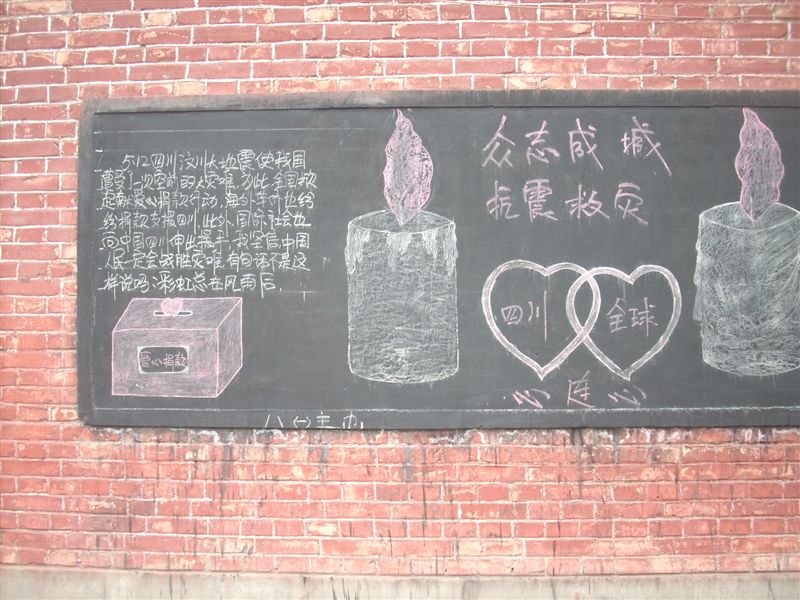 5.12四川汶川大地震使我国
遭受了一次空前的大灾难,为此,全国掀
起献爱心捐款行动,海外华侨也纷
纷捐款支援四川,此外,国际社会也
向中国四川伸出援手,我坚信,中国
人民一定会战胜灾难,有句话不是这
样说吗:彩虹总在风雨后.
爱心捐款
众志成城
抗震救灾
四川
全球
心连心
八(一)主办